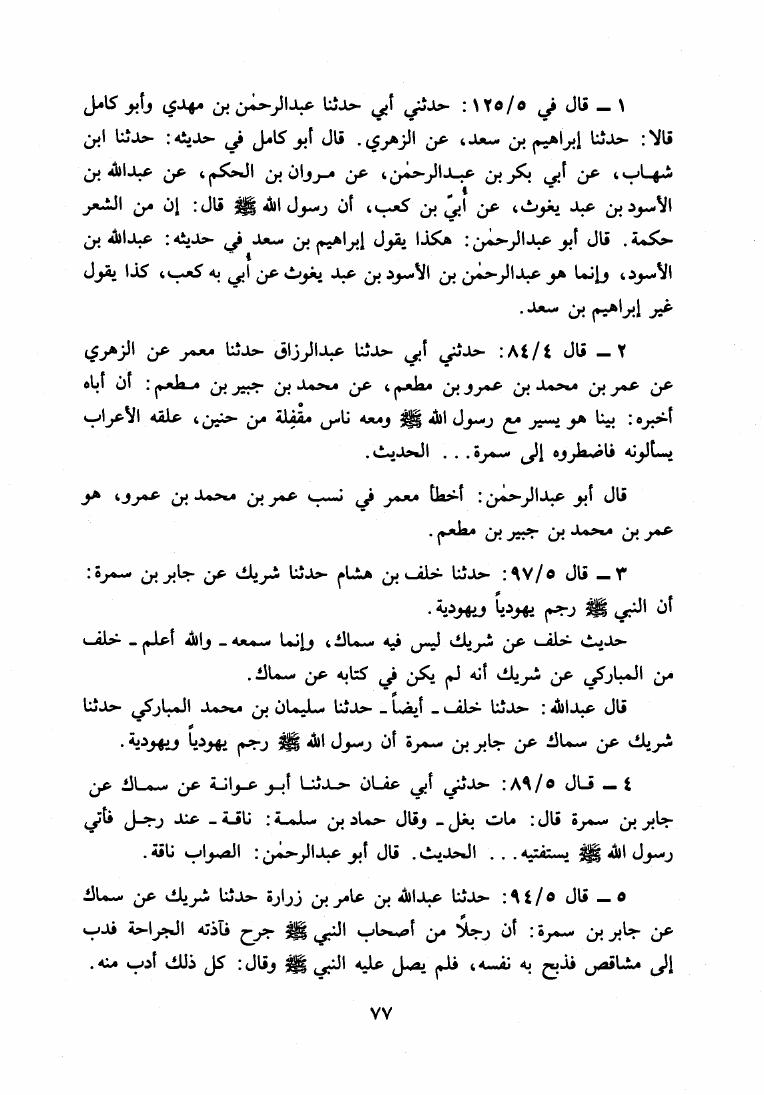 ١ ـ قال في ١٢٥/٥: حدثني أبي حدثنا عبدالرحمٰن بن مهدي وأبو كامل
قالا: حدثنا إبراهيم بن سعد، عن الزهري. قال أبو كامل في حديثه: حدثنا ابن
شهاب، عن أبي بكر بن عبدالرحمٰن، عن مروان بن الحكم، عن عبدالله بن
الأسود بن عبد يغوث، عن أُبيّ بن كعب، أن رسول الله ﷺ قال: إن من الشعر
حكمة. قال أبو عبدالرحمٰن: هكذا يقول إبراهيم بن سعد في حديثه: عبدالله بن
الأسود، وإنما هو عبدالرحمٰن بن الأسود بن عبد يغوث عن أُبي به كعب، كذا يقول
غير إبراهيم بن سعد.
٢ ـ قال ٨٤/٤: حدثني أبي حدثنا عبدالرزاق حدثنا معمر عن الزهري
عن عمر بن محمد بن عمرو بن مطعم، عن محمد بن جبير بن مطعم: أن أباه
أخبره: بينا هو يسير مع رسول الله ﷺ ومعه ناس مقْفِلة من حنين، علقه الأعراب
يسألونه فاضطروه إلى سمرة... الحديث.
قال أبو عبدالرحمٰن: أخطأ معمر في نسب عمر بن محمد بن عمرو، هو
عمر بن محمد بن جبير بن مطعم.
٣ ـ قال ٩٧/٥: حدثنا خلف بن هشام حدثنا شريك عن جابر بن سمرة:
أن النبي ﷺ رجم يهودياً ويهودية.
حديث خلف عن شريك ليس فيه سماك، وإنما سمعه ـ والله أعلم ـ خلف
من المباركي عن شريك أنه لم يكن في كتابه عن سماك.
قال عبدالله: حدثنا خلف ـ أيضاً ـ حدثنا سليمان بن محمد المباركي حدثنا
شريك عن سماك عن جابر بن سمرة أن رسول الله ﷺ رجم يهودياً ويهودية.
٤ ـ قال ٨٩/٥: حدثني أبي عفان حدثنا أبو عوانة عن سماك عن
جابر بن سمرة قال: مات بغل ـ وقال حماد بن سلمة: ناقة ـ عند رجل فأتي
رسول الله ﷺ يستفتيه... الحديث. قال أبو عبدالرحمٰن: الصواب ناقة.
٥ ـ قال ٩٤/٥: حدثنا عبدالله بن عامر بن زرارة حدثنا شريك عن سماك
عن جابر بن سمرة: أن رجلًا من أصحاب النبي ﷺ جرح فآذته الجراحة فدب
إلى مشاقص فذبح به نفسه، فلم يصل عليه النبي ﷺ وقال: كل ذلك أدب منه.
٧٧